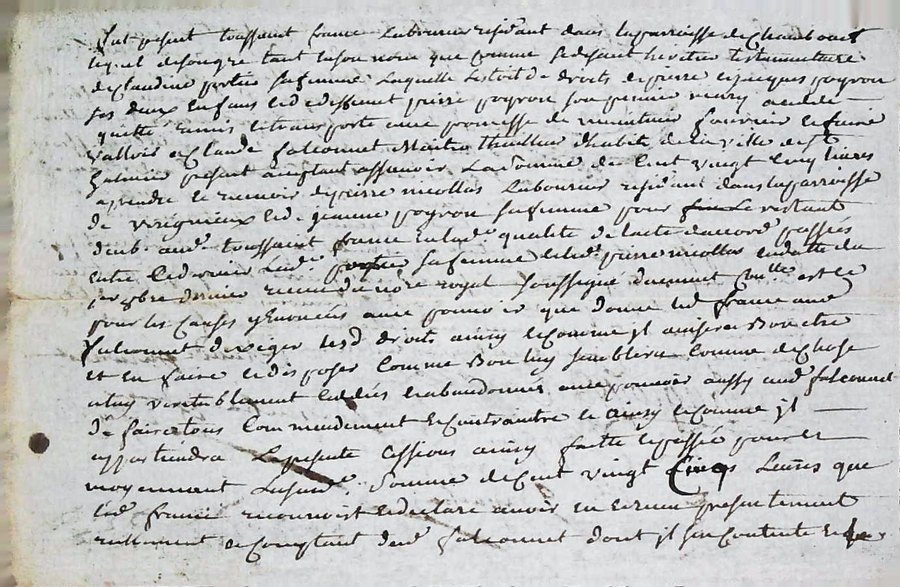 fut présent toussaint france Laboureur résidant dans la parroisse de Chambouet
lequel de son gre tant en son nom que comme se disant héritier testamentaire
de claudine sa femme Laquelle Lestoit de droits de pierre et jacques poyron
ses deux Enfans et dudeffunt pierre poyron son premier mary a cédé
quitté remis et transporte avec promesse de maintenir fournir et faire
valloir a Claude falconnet Maitre thuillier habitt de la ville de St
galmier présent acceptant assavoir La somme de Cent vingt cinq livres
a prendre et recevoir de pierre nicollas Laboureur résidant dans la parroisse
de virignieux et de jeanne poyron sa femme pour restant
deub aud toussaint france en lad qualité de lacte daccord passées
entre led dernier Led. sa femme et led. pierre nicollas en datte du
jer xbre dernier receu du nore royal soussigné duement Conllé est ce
pour les Causes y Enoncées avec pouvoir que donne led france aud
falconnet dexiger lesd droits ainsy et comme jl avisera Bon etre
et En faire et disposer Comme Bon luy semblera Comme de Chose
a luy veritablement Ceddées et abandonnée avec pouvoir aussy aud falconnet
de faire tous Commendement et Contraintre ainsy et comme jl
appartiendra La présente Cession ainsy faitte et passée pour et
moyennant Lasusd. Somme de Cent vingt Cinq Livres que
led france reconnoist et declare avoir eu et receu présentement
reellement et Comptant dud falconnet dont jl sen Contente et